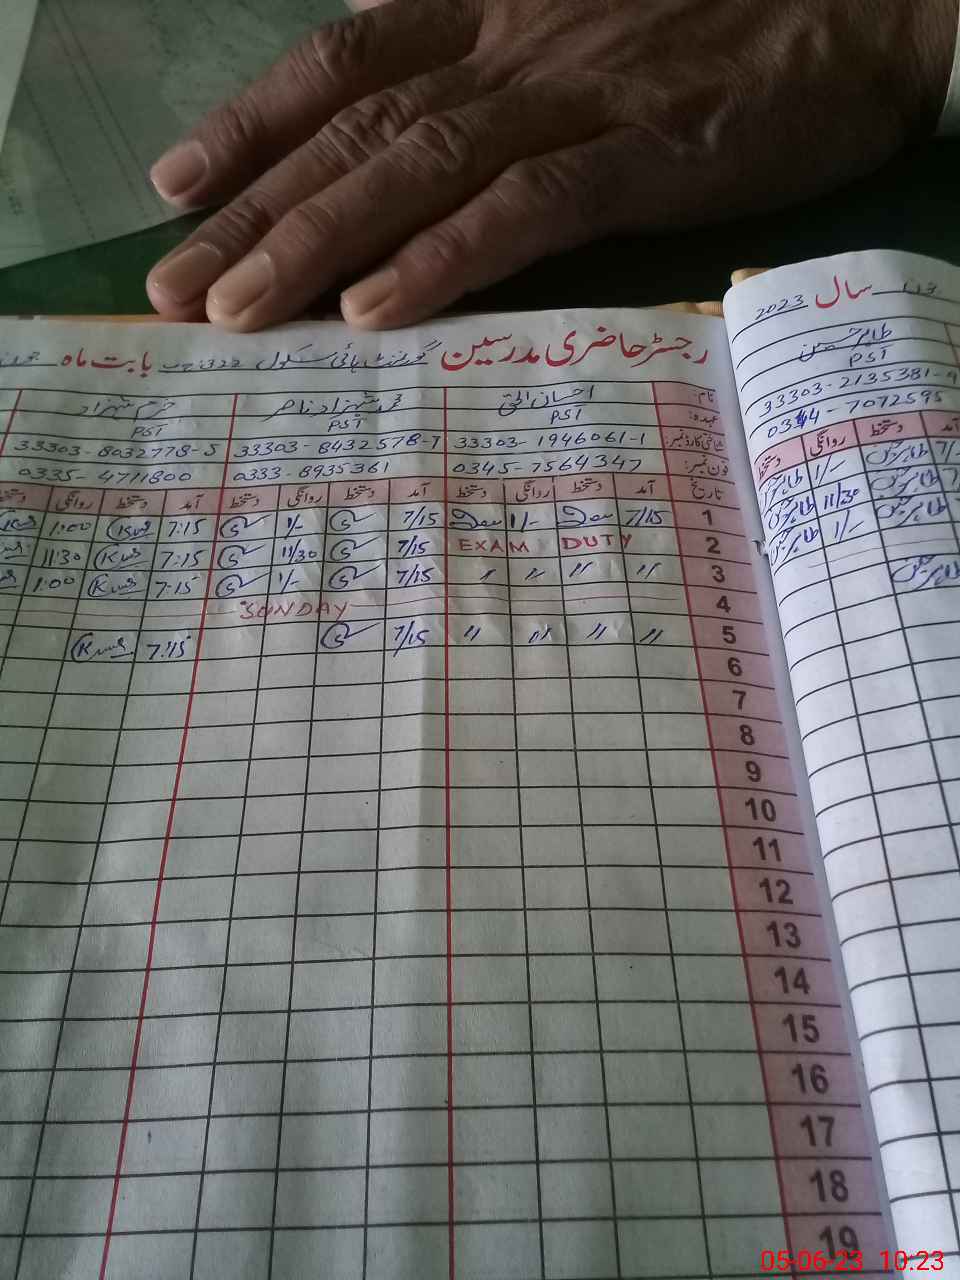 رجسٹر حاضری مدرسین گورنمنٹ ہائی سکول 322 ج ب بابت ماہ جون
سال 2023
نام: احسان الحق محمد شہزاد ناصر خرم شہزاد
عہدہ: PST PST PST
شناختی کارڈ نمبر: 33303-1946061-1 33303-8432578-7 33303-8032778-5
فون نمبر: 0345-7564347 0333-8935361 0335-4711800
تاریخ آمد دستخط روانگی دستخط آمد دستخط روانگی دستخط آمد دستخط روانگی دستخط
1 7/15 1/- 7/15 1/- 7:15 1:00
2 EXAM DUTY 7/15 11/30 7:15 11:30
3 " " " " 7/15 1/- 7:15 1:00
4 SUNDAY
5 " " " " 7/15 7:15
6
7
8
9
10
11
12
13
14
15
16
17
18
19
طاہر حسین
PST
33303-2135381-9
0344-7072595
آمد دستخط روانگی دستخط
7/ طاہر حسین 1/- طاہر حسین
7 طاہر حسین 11/30 طاہر حسین
1/- طاہر حسین
طاہر حسین
05-06-23 10:23